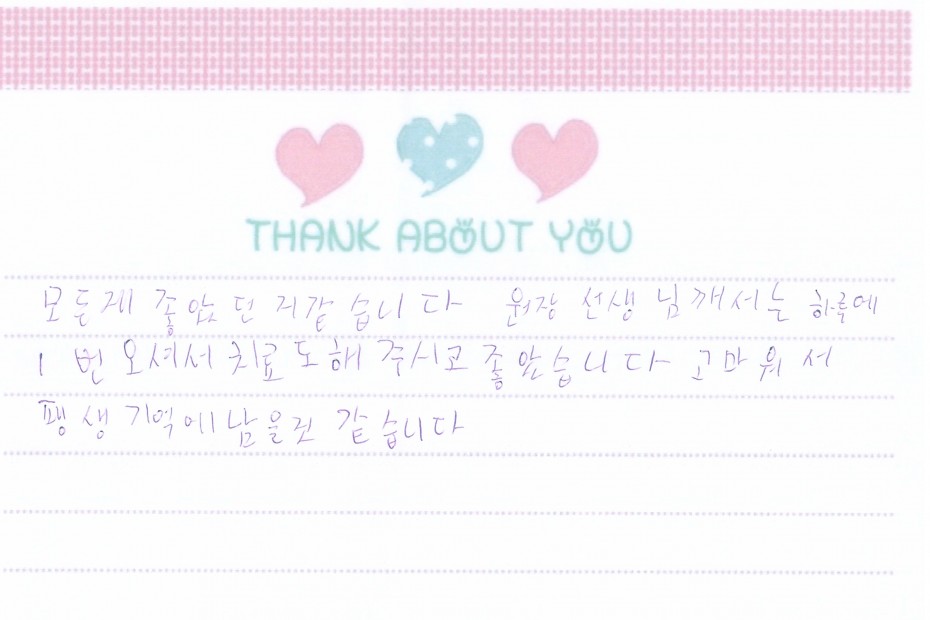 THANK ABOUT YOU
모든게 좋았던 거같습니다 원장 선생님께서는 하루에
1 번 오셔서 치료도해 주시고 좋았습니다 고마워서
평생 기억에 남을것 같습니다